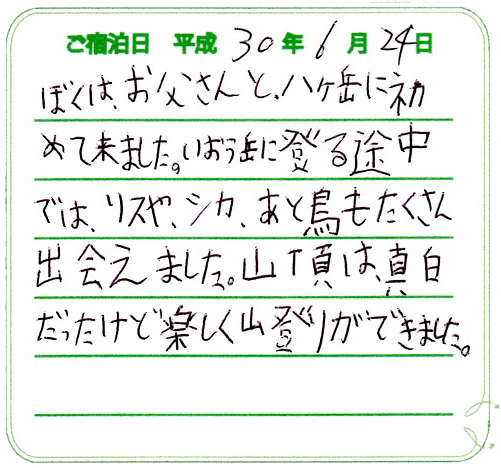 ご宿泊日 平成30年6月24日
ぼくは、お父さんと、八ヶ岳に初
めて来ました。いおう岳に登る途中
では、リスや、シカ、あと鳥もたくさん
出会えました。山頂は、真白
だったけど楽しく山登りができました。